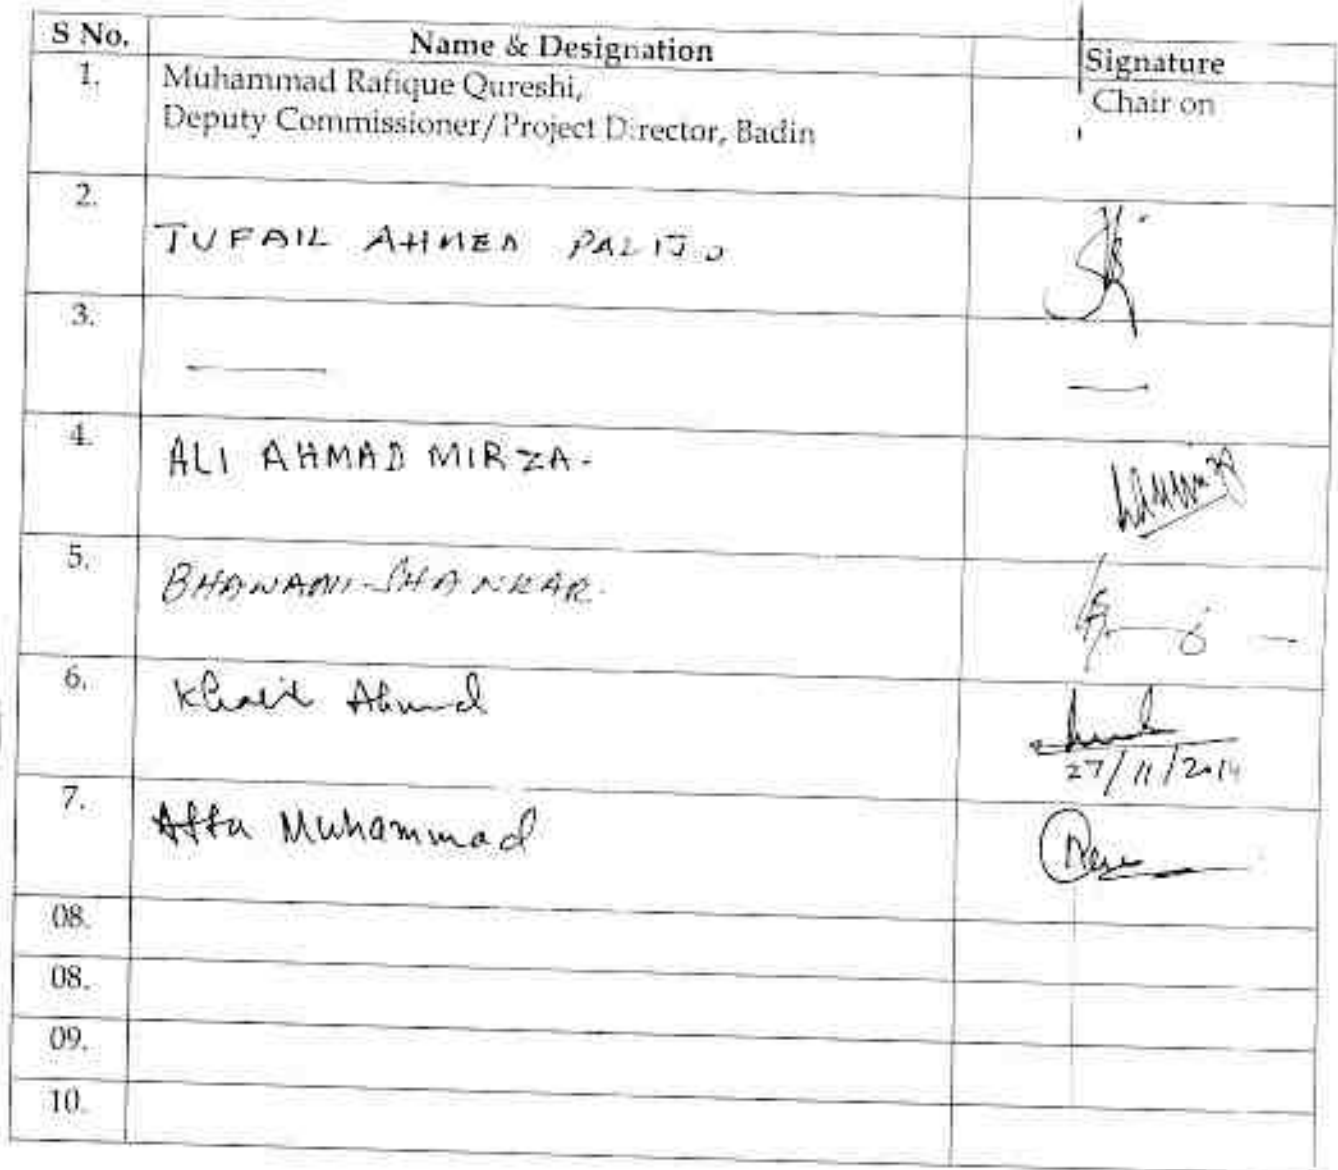 S No. Name & Designation Signature
1. Muhammad Rafique Qureshi, Chair on
Deputy Commissioner/Project Director, Badin
2.
TUFAIL AHMED PALIJO
3.
4.
ALI AHMAD MIRZA.
5.
BHAWANI-SHANKAR.
6.
Khalil Ahmed
27/11/2014
7.
Atta Muhammad
08.
08.
09.
10.